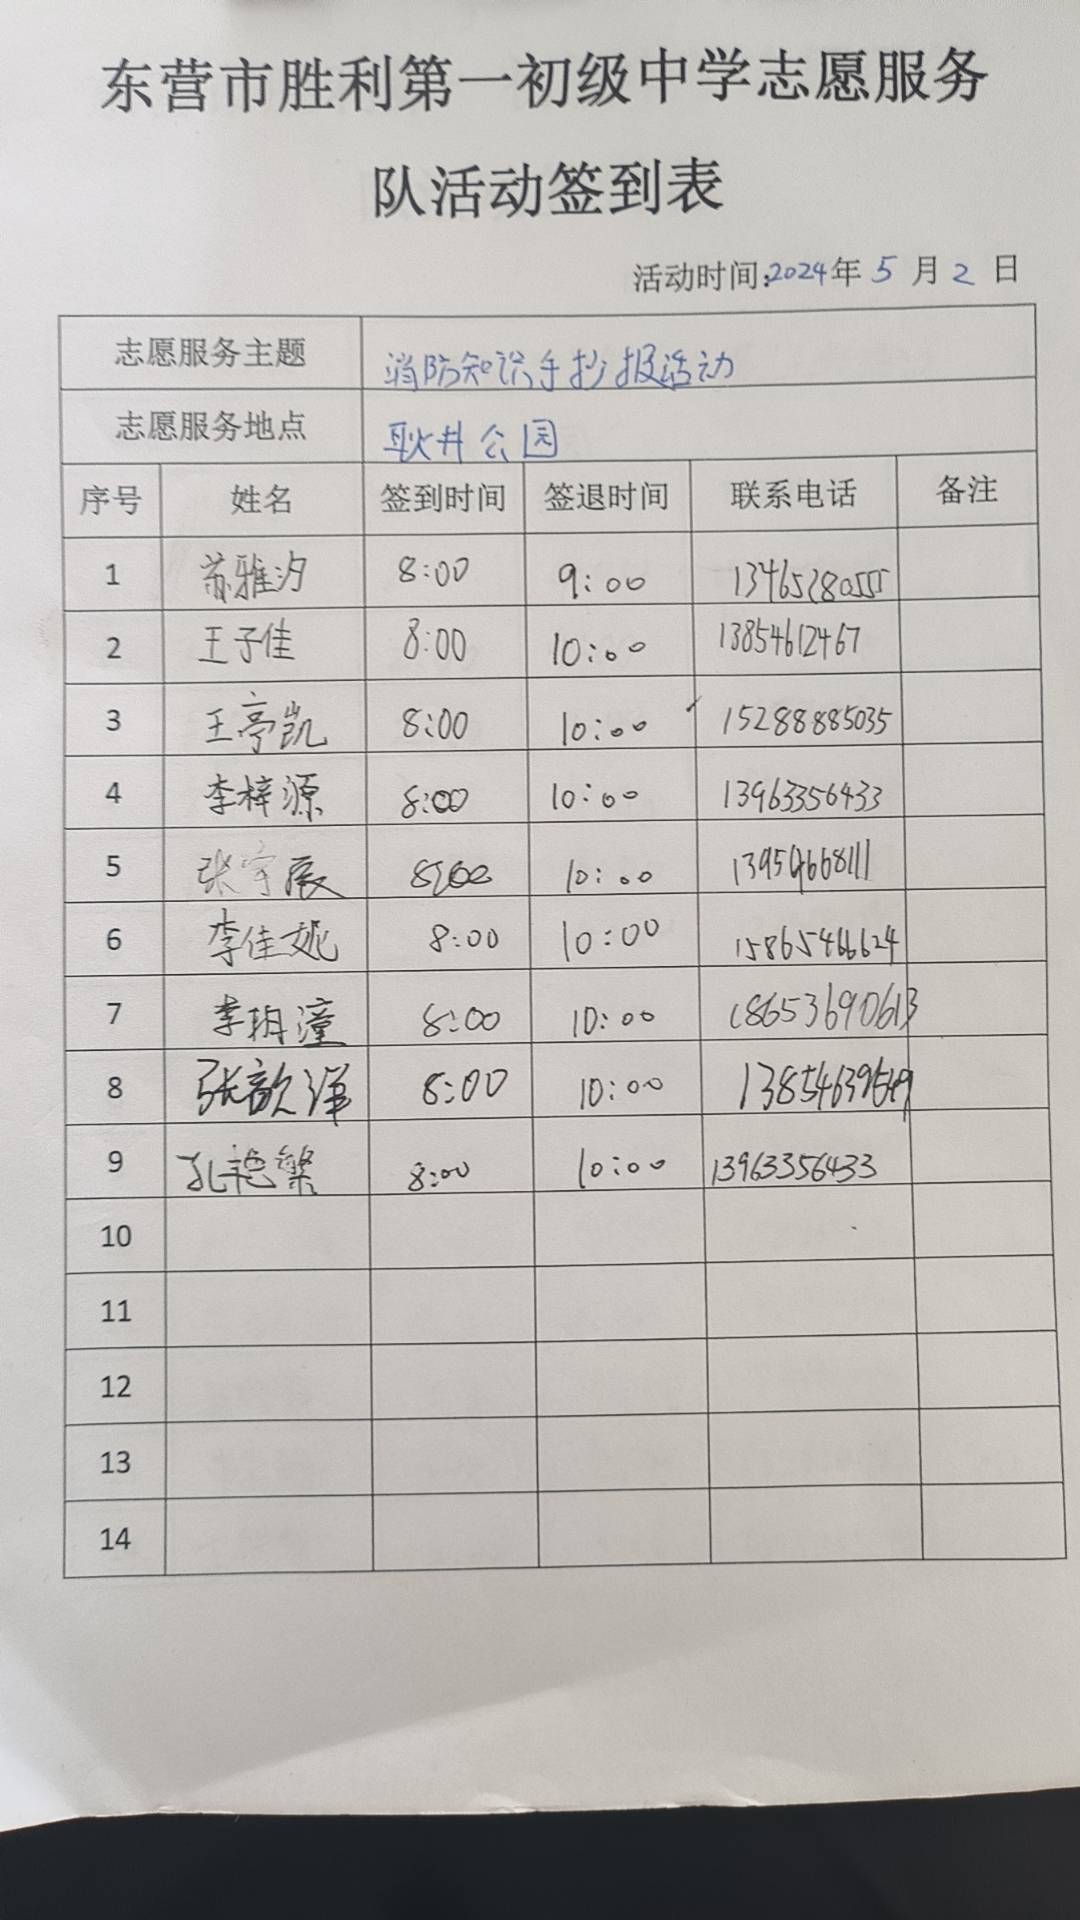 东营市胜利第一初级中学志愿服务
队活动签到表
活动时间:2024年 5 月 2 日
志愿服务主题 消防知识手抄报活动
志愿服务地点 耿井公园
序号 姓名 签到时间 签退时间 联系电话 备注
1 苏雅汐 8:00 9:00 13465280555
2 王子佳 8:00 10:00 13854612467
3 王亭凯 8:00 10:00 15288885035
4 李梓源 8:00 10:00 13963356433
5 张宇辰 8:00 10:00 13954668111
6 李佳妮 8:00 10:00 15865466624
7 李玥潼 8:00 10:00 18653690613
8 张歆洋 8:00 10:00
9 孔艳繁 8:00 10:00 13963356433
10
11
12
13
14